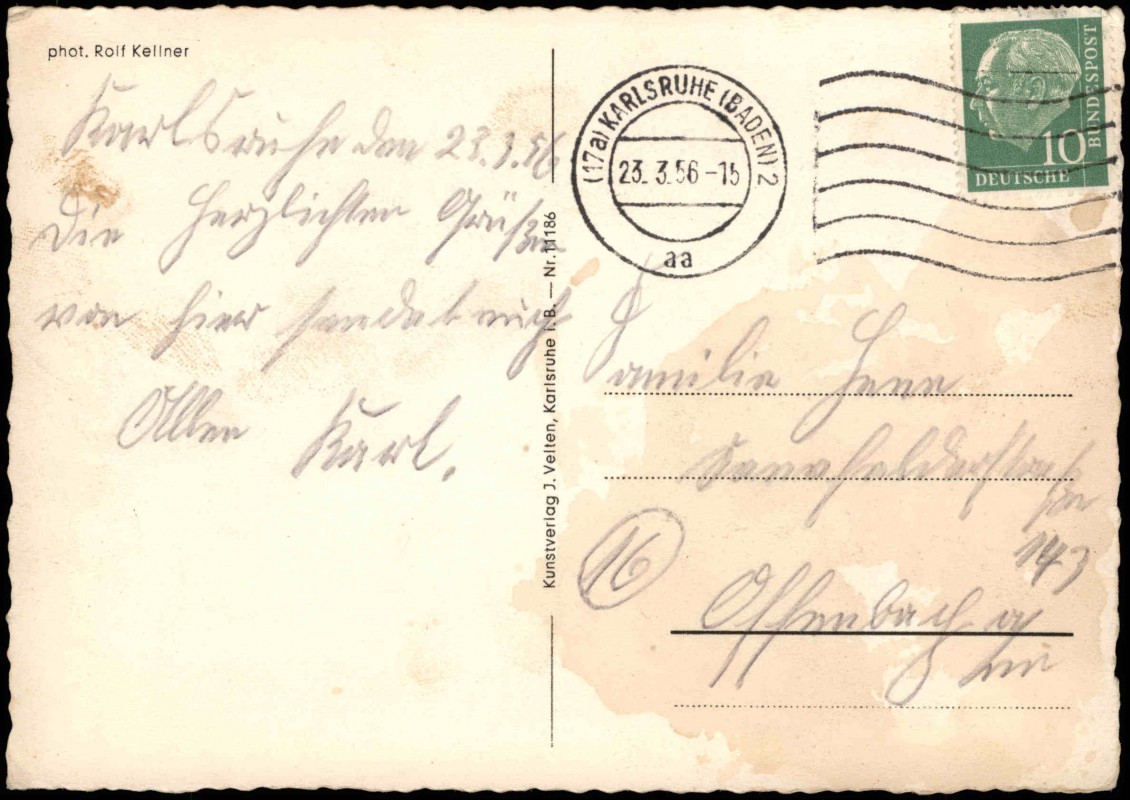 phot. Rolf Kellner
Karlsruhe den 23.3.56
Die herzlichten Grüßen
von hier sendet euch
Allen Karl.
Kunstverlag J. Velten, Karlsruhe i. B. — Nr. 11186
(17a) KARLSRUHE (BADEN) 2
23. 3. 56 - 15
aa
10
DEUTSCHE
BUNDESPOST
Familie
143
(16) Offenbach a